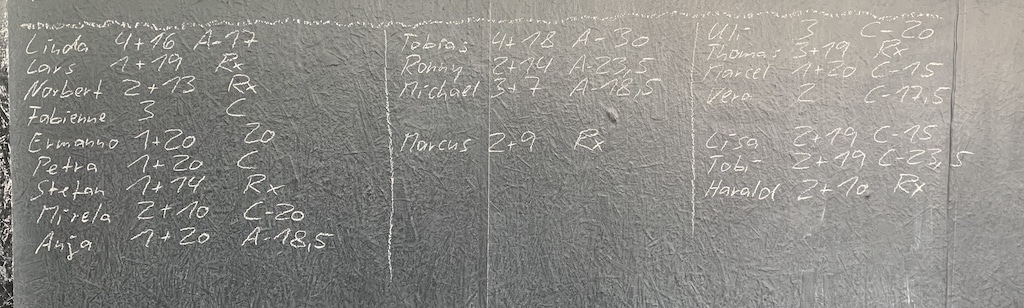 Linda 4+16 A-17
Lars 1+19 Rx
Norbert 2+13 Rx
Fabienne 3 C
Ermanno 1+20 20
Petra 1+20 C
Stefan 1+14 Rx
Mirela 2+10 C-20
Anja 1+20 A-18,5
Tobias 4+18 A-30
Ronny 2+14 A-23,5
Michael 3+7 A-18,5
Marcus 2+9 Rx
Uli 3 C-20
Thomas 3+19 Rx
Marcel 1+20 C-15
Vera 2 C-17,5
Lisa 2+19 C-15
Tobi 2+19 C-23,5
Harald 2+10 Rx